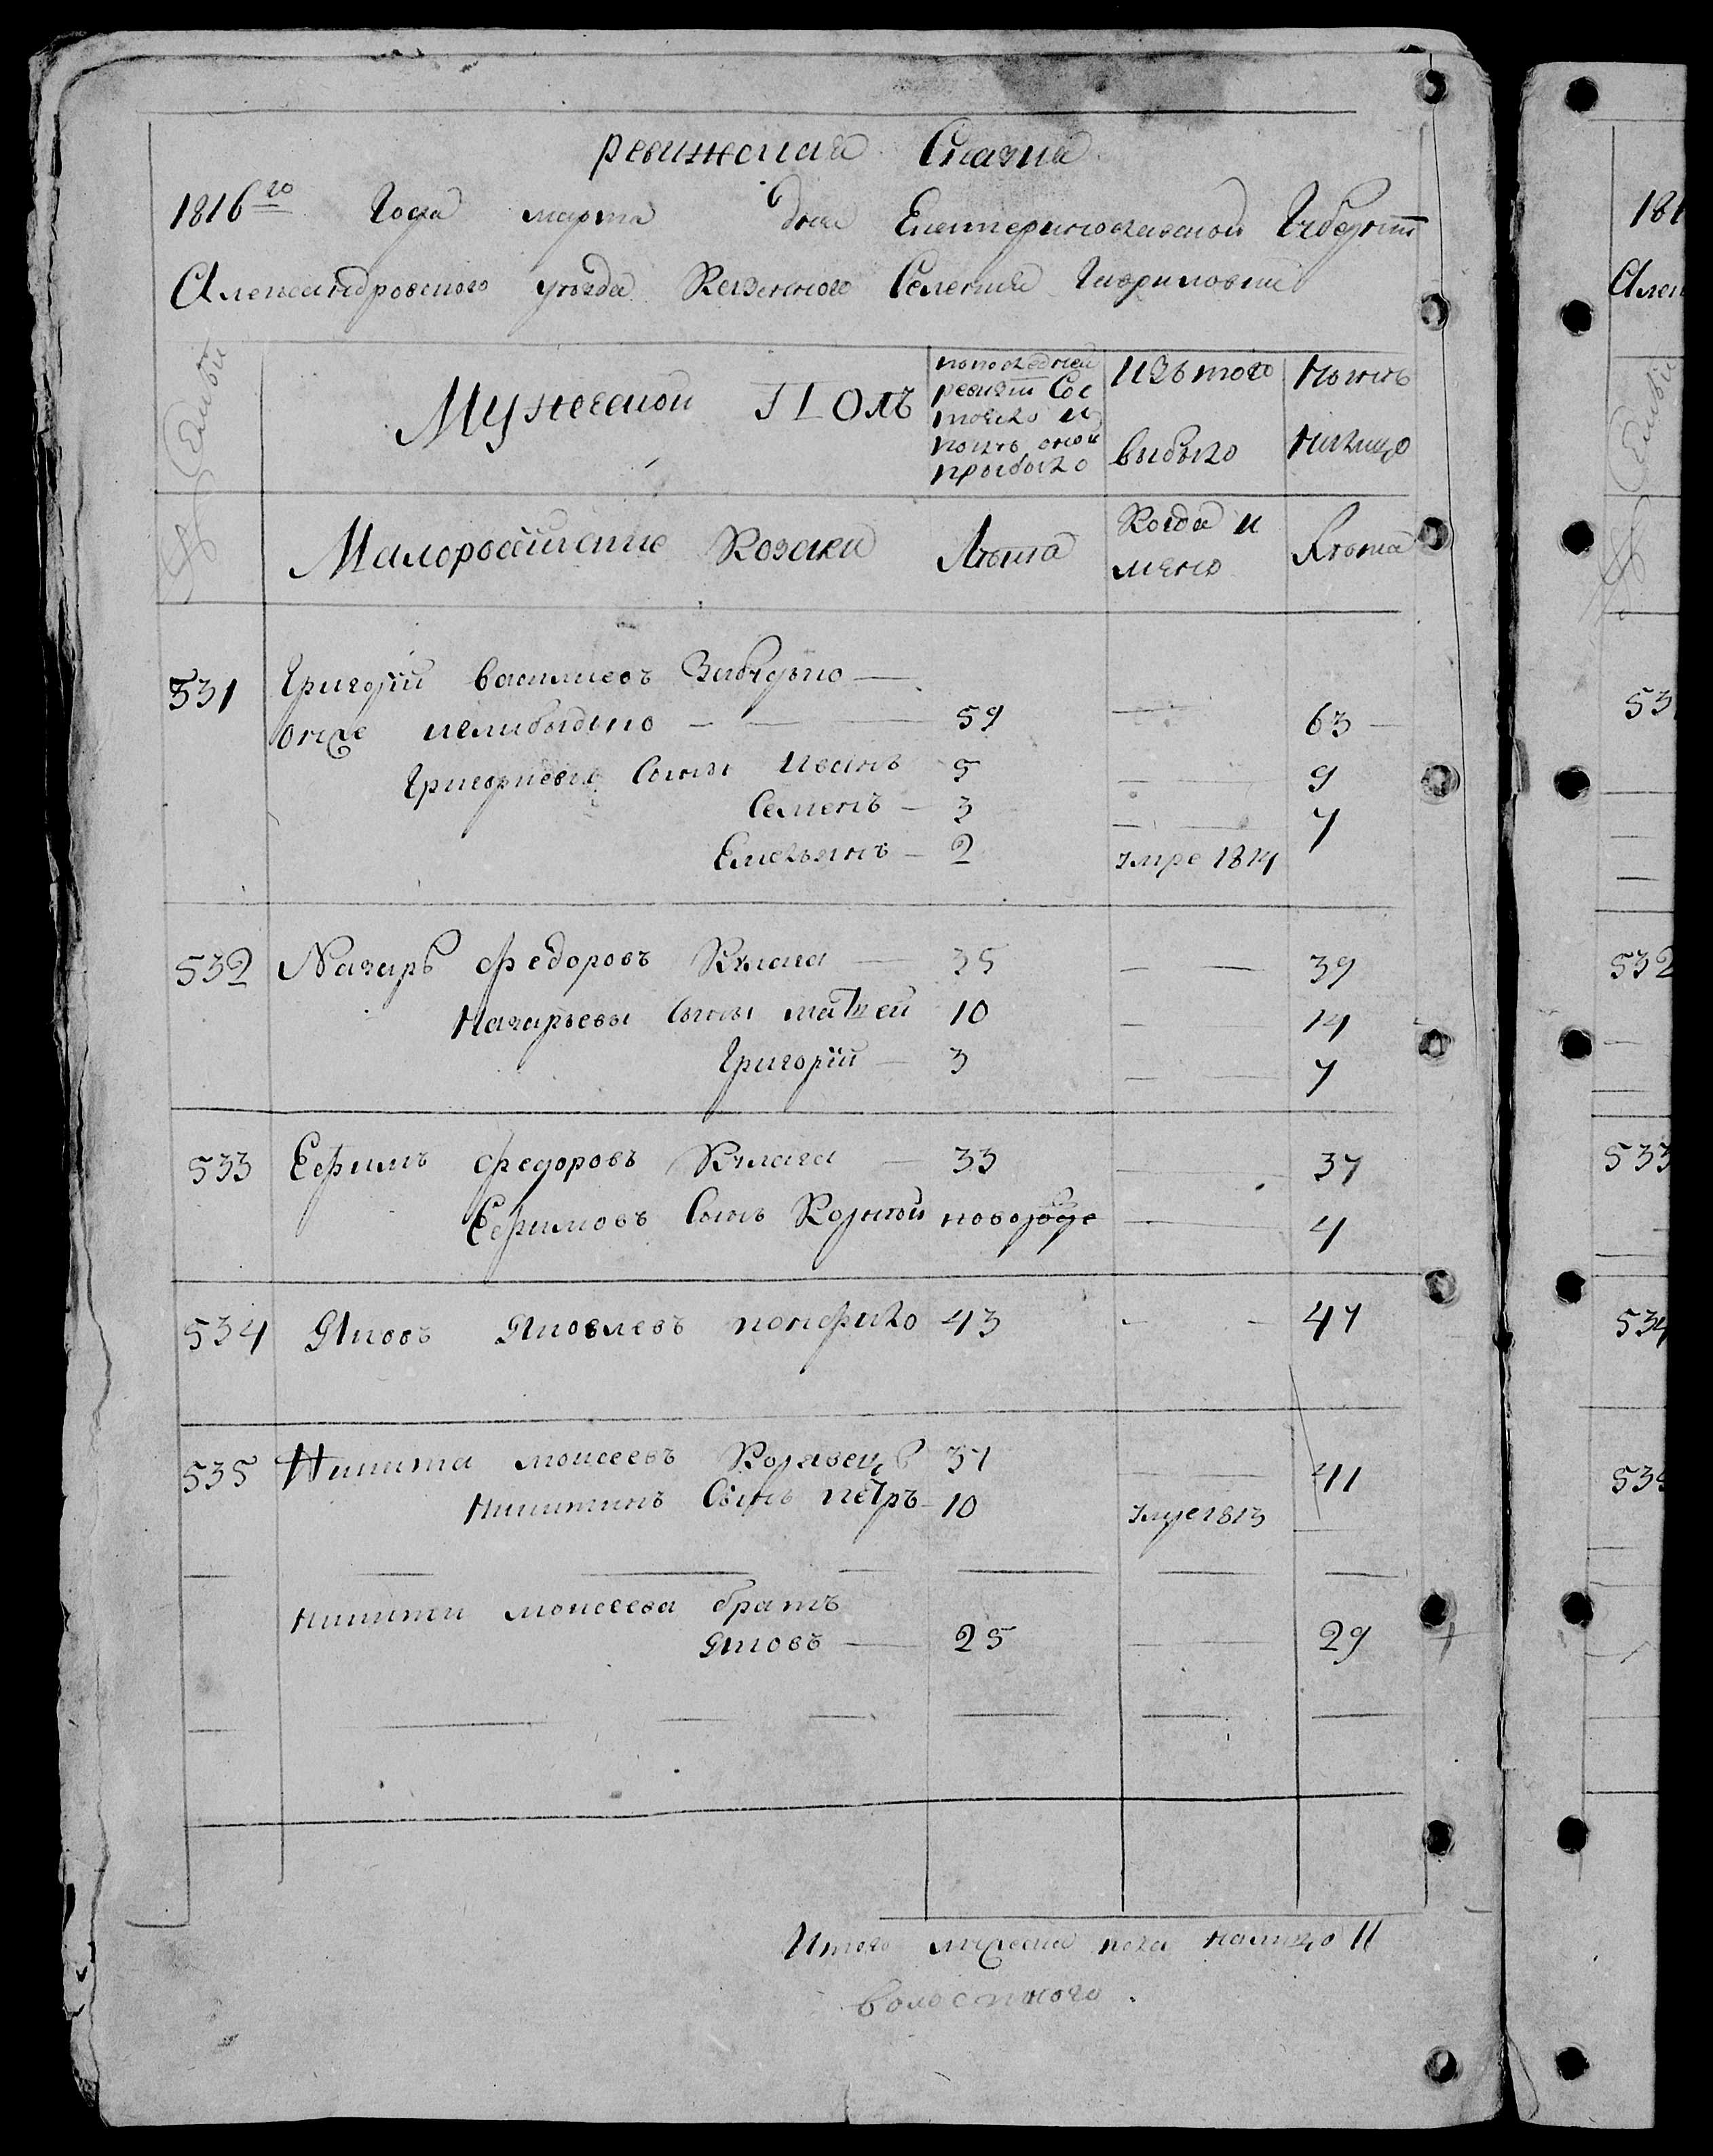 ревижская Сказка
1816го Года марта дня Екатеринославской Губерніи
Александровского уезда Казенного Селенія Гавриловки
Семьи Мужеской Полъ попоследней ревизіи Сос тояло и послѣ оной прибыло Изътого выбыло Нынѣ налицо
№ Малороссійские Козаки Лѣта Когда имено Лѣта
531 Григорій Васильевъ
онже 59 63
Григориевы Сыны Иванъ 5 9
Семенъ 3 7
Емельянъ 2 умре 1814
532 Назаръ Федоровъ Кулага 35 39
Назарьевы Сыны матвей 10 14
Григорій 3 7
533 Ефимъ Федоровъ Кулага 33 37
Ефимовъ Сынъ Корней новорожде 4
534 Яковъ Яковлевъ понфило 43 47
535 Никита моисеевъ Коравецъ 37 41
Никитинъ Сынъ петръ 10 умре 1813
никиты моисеева братъ
Яковъ 25 29
Итого мужеска пола налицо 11
волостного
181
Алек
Семьи
№
53
532
533
534
535